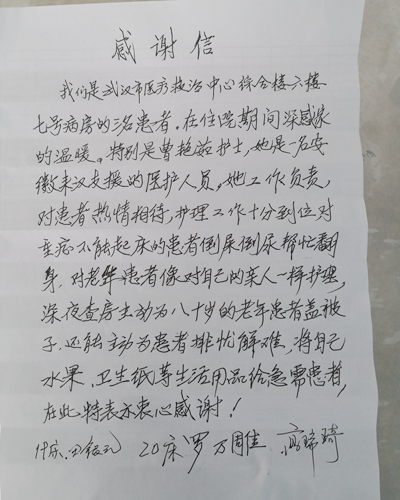 感谢信
我们是武汉市医疗救治中心综合楼六楼
七号病房的三名患者。在住院期间深感家
的温暖。特别是曾艳茹护士,她是一名安
徽来汉支援的医护人员。她工作负责,
对患者热情相待,护理工作十分到位对
重症不能起床的患者倒屎倒尿帮忙翻
身,对老年患者像对自己的亲人一样护理,
深夜查房主动为八十岁的老年患者盖被
子,还能主动为患者排忧解难,将自己
水果、卫生纸等生活用品给急需患者,
在此特表示衷心感谢!
20床罗万周佳